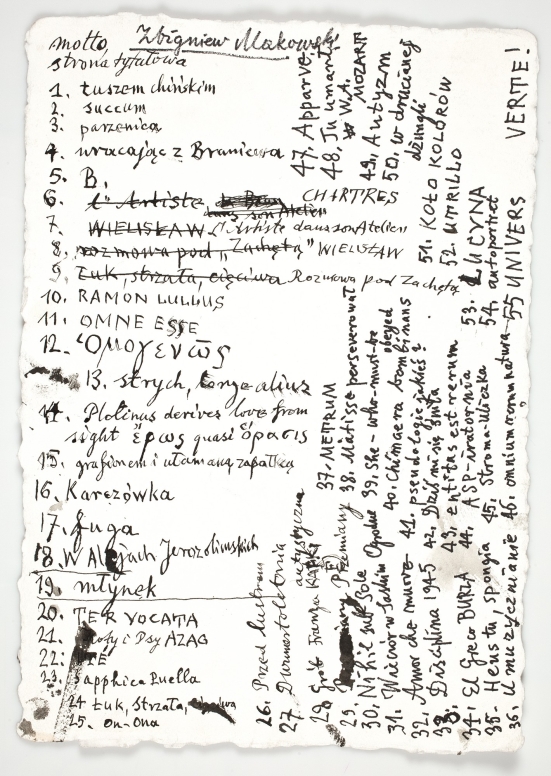 Zbigniew Makowski
motto
strona tytułowa
1. tuszem chińskim
2. succum
3. parzenica
4. wracając z Braniewa
5. B.
6. L'Artiste CHARTRES
dans son Atelier
7. WIELISŁAW L'Artiste dans son Atelier
8. rozmowa pod „Zachętą" WIELISŁAW
9. Łuk, strzała, cięciwa Rozmowa pod Zachętą
10. RAMON LULLUS
11. OMNE ESSE
12. Ὁμογενῶς
13. strych, longe alius
14. Plotinus derives love from
sight ἔρως quasi ὅρασις
15. grafionem i ułamaną zapałką
16. Karczówka
17. fuga
18. W Alejach Jerozolimskich
19. młynek
20. TER VOCATA
21. Psy AZAG
22.
23. Sapphica Puella
24 Łuk, Strzała, cięciwa
25. On-Ona
26. Przed lustrem
27. Dwunastoletnia artystyczna
28. Grób Franza KAFKI
29. Przemiany
30. Nihil sub Sole
31. Wieczór w Saskim Ogrodzie
32. Amor che muove
33. Disciplina 1945
34. El Greco BURZA
35. Heus tu, spongia
36. Umuzycznianie
37. METRUM
38. Matisse perseverował
39. She-who-must-be obeyed
40. Chimaera bombinans
41. pseudologie jakieś?
42. Dziś mi się śniła
43. entitas est rerum
44. ASP-iratornia
45. Stroma uliczka
46. omnium rerum natura
47. Apparve
48. Tu umarł
W. A. MOZART
49. Autyzm
50. w drucianej
dżungli
51. KOŁO KOLORÓW
52. UTRILLO
53. LUCYNA
54. autoportret
55 UNIVERS
VERTE!